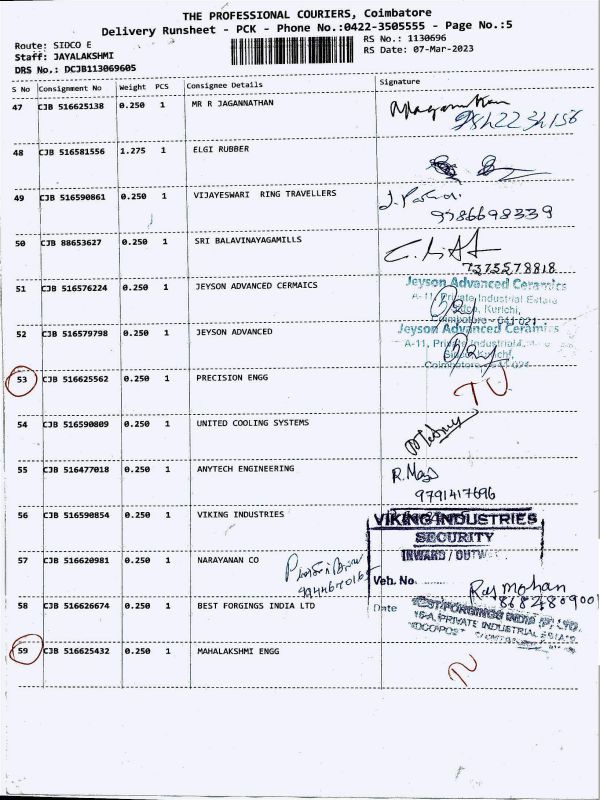 THE PROFESSIONAL COURIERS, Coimbatore
Delivery Runsheet - PCK - Phone No.:0422-3505555 - Page No.:5
Route: SIDCO E
RS No.: 1130696
Staff: JAYALAKSHMI
RS Date: 07-Mar-2023
DRS No.: DCJB113069605
S No Consignment No Weight PCS Consignee Details Signature
47 CJB 516625138 0.250 1 MR R JAGANNATHAN
48 CJB 516581556 1.275 1 ELGI RUBBER
49 CJB 516590861 0.250 1 VIJAYESWARI RING TRAVELLERS
9486698339
50 CJB 88653627 0.250 1 SRI BALAVINAYAGAMILLS
7375578818
51 CJB 516576224 0.250 1 JEYSON ADVANCED CERMAICS
Jeyson Advanced Ceramics
A-11, Private Industrial Estate
Sidco, Kurichi,
Coimbatore - 641 021
52 CJB 516579798 0.250 1 JEYSON ADVANCED
Jeyson Advanced Ceramics
A-11, Private Industrial
Sidco Kurichi,
Coimbatore - 641 021
53 CJB 516625562 0.250 1 PRECISION ENGG
TU
54 CJB 516590809 0.250 1 UNITED COOLING SYSTEMS
55 CJB 516477018 0.250 1 ANYTECH ENGINEERING
9791417696
56 CJB 516590854 0.250 1 VIKING INDUSTRIES
VIKING INDUSTRIES
SECURITY
INWARD / OUTW
57 CJB 516620981 0.250 1 NARAYANAN CO
Veh. No
Raj mohan
8682809001
58 CJB 516626674 0.250 1 BEST FORGINGS INDIA LTD
Date
BEST FORGINGS INDIA (P) LTD.
16-A, PRIVATE INDUSTRIAL ESTATE
SIDCO POST
59 CJB 516625432 0.250 1 MAHALAKSHMI ENGG
TU